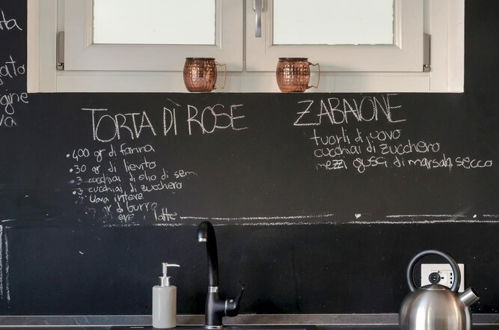 TORTA DÌ ROSE
• 400 gr di farina
• 30 gr di lievito
• 3 cucchiai di olio di sem
• 3 cucchiai di zucchero
• 2 uova intere
• ? gr di burro
latte
ZABAIONE
tuorli d'uovo
cucchiai di zucchero
mezzi gusci di marsala secco